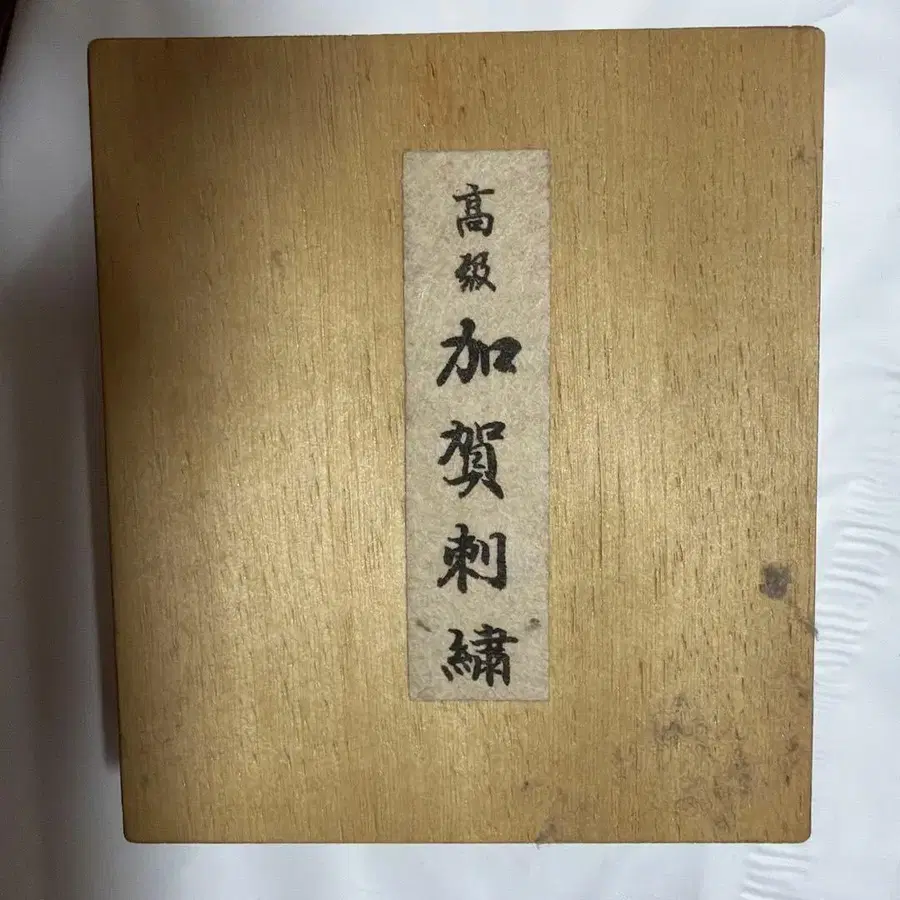 高級加賀刺繍